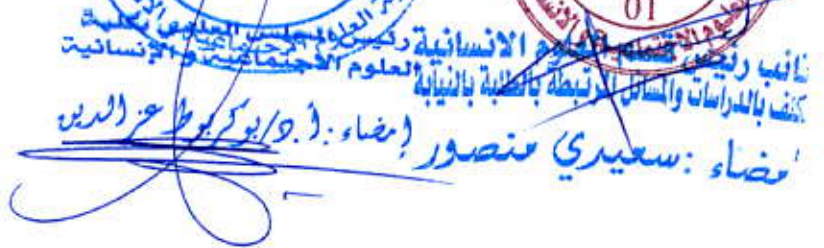 01
نائب رئيس قسم العلوم الانسانية
مكلف بالدراسات والمسائل المرتبطة بالطلبة بالنيابة
إمضاء : سعيدي منصور
رئيس المجلس العلمي لكلية
العلوم الاجتماعية و الإنسانية
إمضاء : أ.د/بوكربوط عز الدين